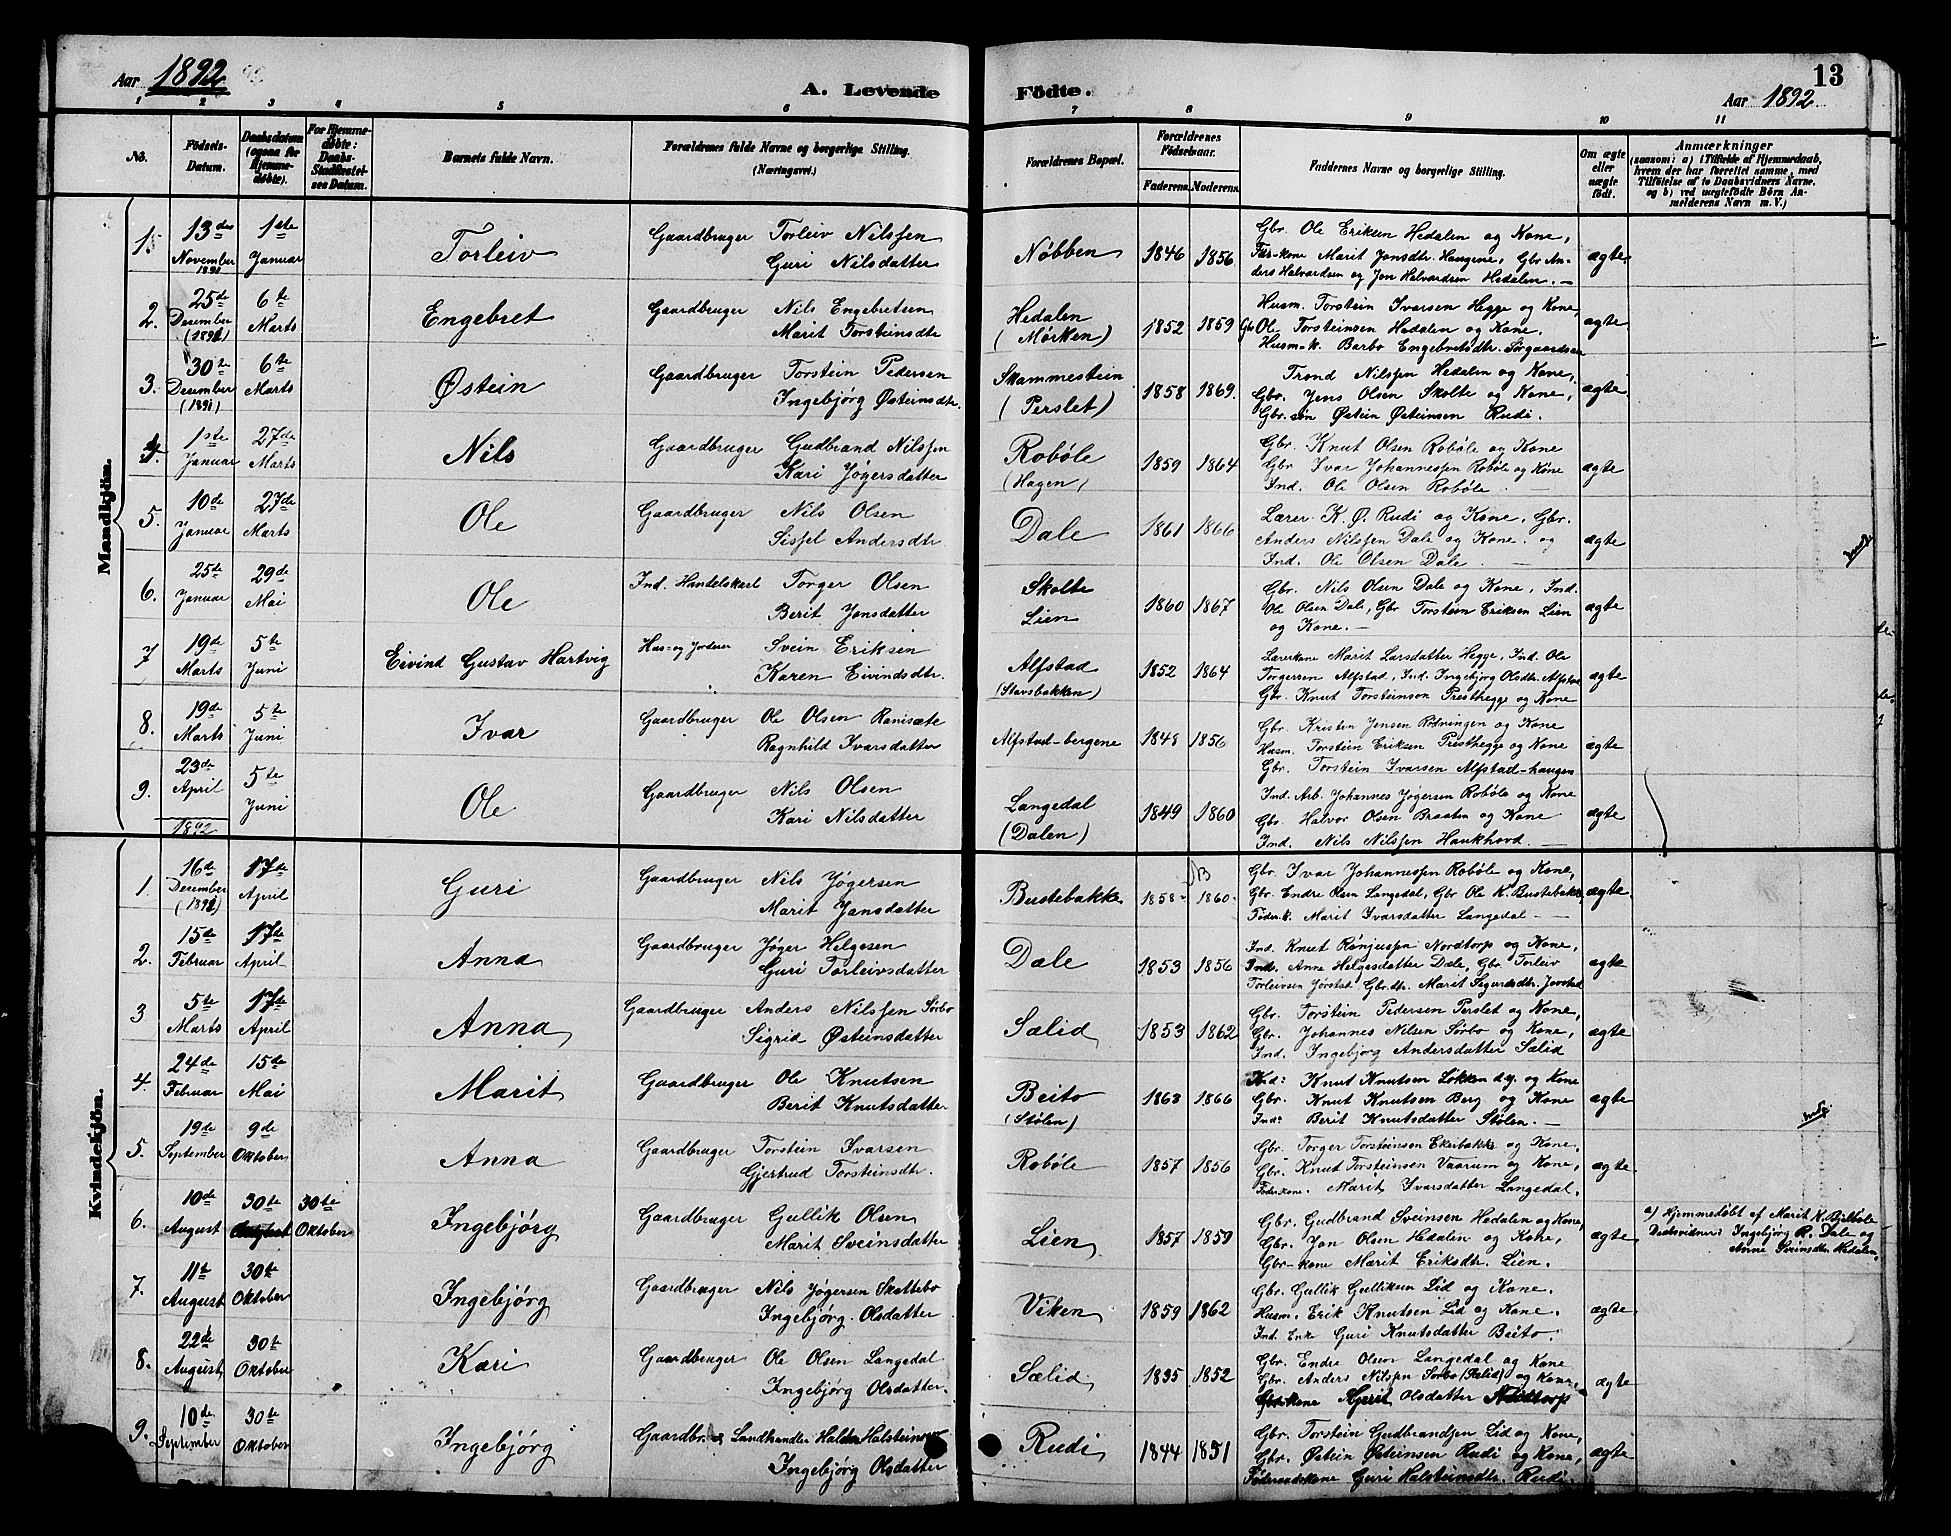 Aar 1892
A. Levende
Fødte.
13
Aar 1892
1 2 3 4 5 6 7 8 9 10 11
No.
Fødsels-
Datum.
Daabsdatum
(ogsaa for
Hjemme-
døbte).
For Hjemme-
døbte:
Daabs-
Stadfæstel-
ses Datum.
Barnets fulde Navn.
Forældrenes fulde Navne og borgerlige Stilling.
(Næringsvei.)
Forældrenes Bopæl.
Forældrenes
Fødselsaar.
Faderens. Moderens.
Faddernes Navne og borgerlige Stilling.
Om ægte
eller
uægte
født.
Anmærkninger
(saasom: a) i Tilfælde af Hjemmedaab,
hvem der har forrettet samme, med
Tilføielse af to Daabsvidners Navne,
og b) ved uægtefødte Børn An-
melderens Navn m. V.)
Mandkjøn.
1. 13de November 1891 1ste Januar Torleiv Gaardbruger Torleiv Nilssen
Guri Nilsdatter
Nøbben 1846 1856
Gbr. Ole Eriksen Hedalen og Kone,
kone Marit Jonsdtr. Haugene, Gbr. An-
ders Halvardsen og Jon Halvardsen Hedalen. —
ægte
2. 25de December (1891) 6te Marts Engebret Gaardbruger Nils Engebretsen
Marit Torsteinsdtr
Hedalen (Mørken) 1852 1859
Husm. Torstein Ivarsen Hegge og Kone,
Gbr Ole Torsteinsen Hedalen og Kone.
Husm-k. Barbo Engebretsdtr. Sørgaardsen
ægte
3. 30te December (1891) 6te Marts Østein Gaardbruger Torstein Pedersen
Ingebjørg Østeinsdtr.
Skammestein (Perslet) 1858 1869.
Trond Nilssen Hedalen og Kone,
Gbr. Jens Olsen Skolte og Kone,
Gbr. søn Østein Østeinsen Rudi.
ægte
4. 1ste Januar 27de Marts Nils Gaardbruger Gudbrand Nilssen
Kari Jøgersdatter
Robøle (Hagen) 1859 1864
Gbr. Knut Olsen Robøle og Kone
Gbr Ivar Johannessen Robøle og Kone
Ind. Ole Olsen Robøle. —
ægte
5. 10de Januar 27de Marts Ole Gaardbruger Nils Olsen
Sissel Andersdtr
Dale 1861 1866
Lærer K. Ø. Rudi og Kone, Gbr.
Anders Nilssen Dale og Kone. og
Ind. Ole Olsen Dale. —
ægte
6. 25de Januar 29de Mai Ole Ind. Handelskarl Torger Olsen
Berit Jonsdatter
Skolte Lien 1860 1867
Gbr. Nils Olsen Dale og Kone, Ind.
Ole Olsen Dale, Gbr Torstein Eriksen Lien
og Kone. —
ægte
7 19de Marts 5te Juni Eivind Gustav Hartvig Hus- og Jordeier Svein Eriksen
Karen Eivindsdtr.
Alfstad (Stavsbakken) 1852 1864
Lærerkone Marit Larsdatter Hegge, Ind. Ole
Torgersen Alfstad, Ind. Ingebjørg Olsdtr. Alfstad
Gbr. Knut Torsteinson Presthegge og Kone
ægte
8. 19de Marts 5te Juni Ivar Gaardbruger Ole Olsen Ranisæte
Ragnhild Ivarsdatter
Alfstad-bergene 1848 1856
Gbr. Kristen Jensen Rødningen og Kone
Husm. Torstein Eriksen Presthegge og Kone
Gbr. Torstein Ivarsen Alfstad-haugen
ægte
9. 23de April 5te Juni Ole Gaardbruger Nils Olsen
Kari Nilsdatter
Langedal (Dalen) 1849 1860
Ind. Arb. Johannes Jøgersen Robøle og Kone
Gbr. Halvor Olsen Braaten og Kone
Ind. Nils Nilssen Haukhovd. —
ægte
1892
Kvindekjøn.
1. 16de December (1891) 17de April Guri Gaardbruger Nils Jøgersen
Marit Jonsdatter
Bustebakke 1858 1860.
Gbr. Ivar Johannessen Robøle og Kone,
Gbr. Endre Olsen Langedal, Gbr Ole K. Bustebakke
Føder.k. Marit Ivarsdatter Langedal —
ægte
2. 15de Februar 17de April Anna Gaardbruger Jøger Helgesen
Guri Torleivsdatter
Dale 1853 1856
Ind. Knut Rønjussen Nordtorp og Kone,
Ind. Anne Helgesdatter Dale, Gbr. Torleiv
Torleivsen Jørstad, Gbr.dtr. Marit Sigurdsdtr. Jørstad
ægte
3 5te Marts 17de April Anna Gaardbruger Anders Nilssen Sørbo
Sigrid Østeinsdatter
Sælid 1853 1862
Gbr. Torstein Pedersen Perslet og Kone,
Gbr. Johannes Nilsen Sørbo og Kone,
Ind. Ingebjørg Andersdatter Sælid
ægte
4. 24de Februar 15de Mai Marit Gaardbruger Ole Knutsen
Berit Knutsdatter
Beito (Stølen) 1863 1866
Ind: Knut Knutsen Løkken d.y. og Kone
Gbr. Knut Knutsen Berg og Kone
Ind: Berit Knutsdatter Stølen. —
ægte
5. 19de September 9de Oktober Anna Gaardbruger Torstein Ivarsen
Gjertrud Torsteinsdtr.
Robøle 1857 1856
Gbr. Torger Torsteinsen Ekeibakke og Kone.
Gbr. Knut Torsteinsen Vaarum og Kone,
Føderkone. Marit Ivarsdatter Langedal.
ægte
6. 10de August 30te 30te Oktober Ingebjørg Gaardbruger Gullik Olsen
Marit Sveinsdatter
Lien 1857 1859
Gbr. Gudbrand Sveinsen Hedalen og Kone,
Gbr. Jon Olsen Hedalen og Kone,
Gbr-kone Marit Eriksdtr. Lien.
ægte
a) Hjemmedøbt af Marit K. Bjelbøle
Daabsvidner: Ingebjørg R. Dale og
Anne Sveinsdtr. Hedalen.
7. 11te August 30te Oktober Ingebjørg Gaardbruger Nils Jøgersen Skattebo
Ingebjørg Olsdatter
Viken 1859 1862
Gbr. Gullik Gulliksen Lid og Kone.
Husm. Erik Knutsen Lid og Kone.
Ind. Enke Guri Knutsdatter Beito.
ægte
8. 22de August 30te Oktober Kari Gaardbruger Ole Olsen Langedal
Ingebjørg Olsdatter.
Sælid 1835 1852
Gbr. Endre Olsen Langedal og Kone
Gbr. Anders Nilssen Sørbo (Sælid) og Kone,
kone Olsdatter
ægte
9. 10de September 30te Oktober Ingebjørg Gaardbr. & Landhandler Halsteinsen
Ingebjørg Olsdatter
Rudi 1844 1851
Gbr. Torstein Gudbrandsen Lid og Kone,
Gbr. Østein Østeinsen Rudi og Kone,
Føderaadskone Guri Halsteinsdtr. Rudi.
ægte